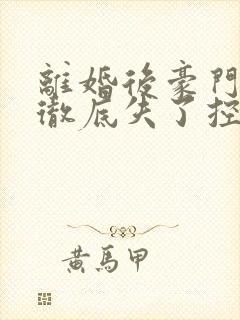 離婚後豪門
徹底失了控
黃馬甲